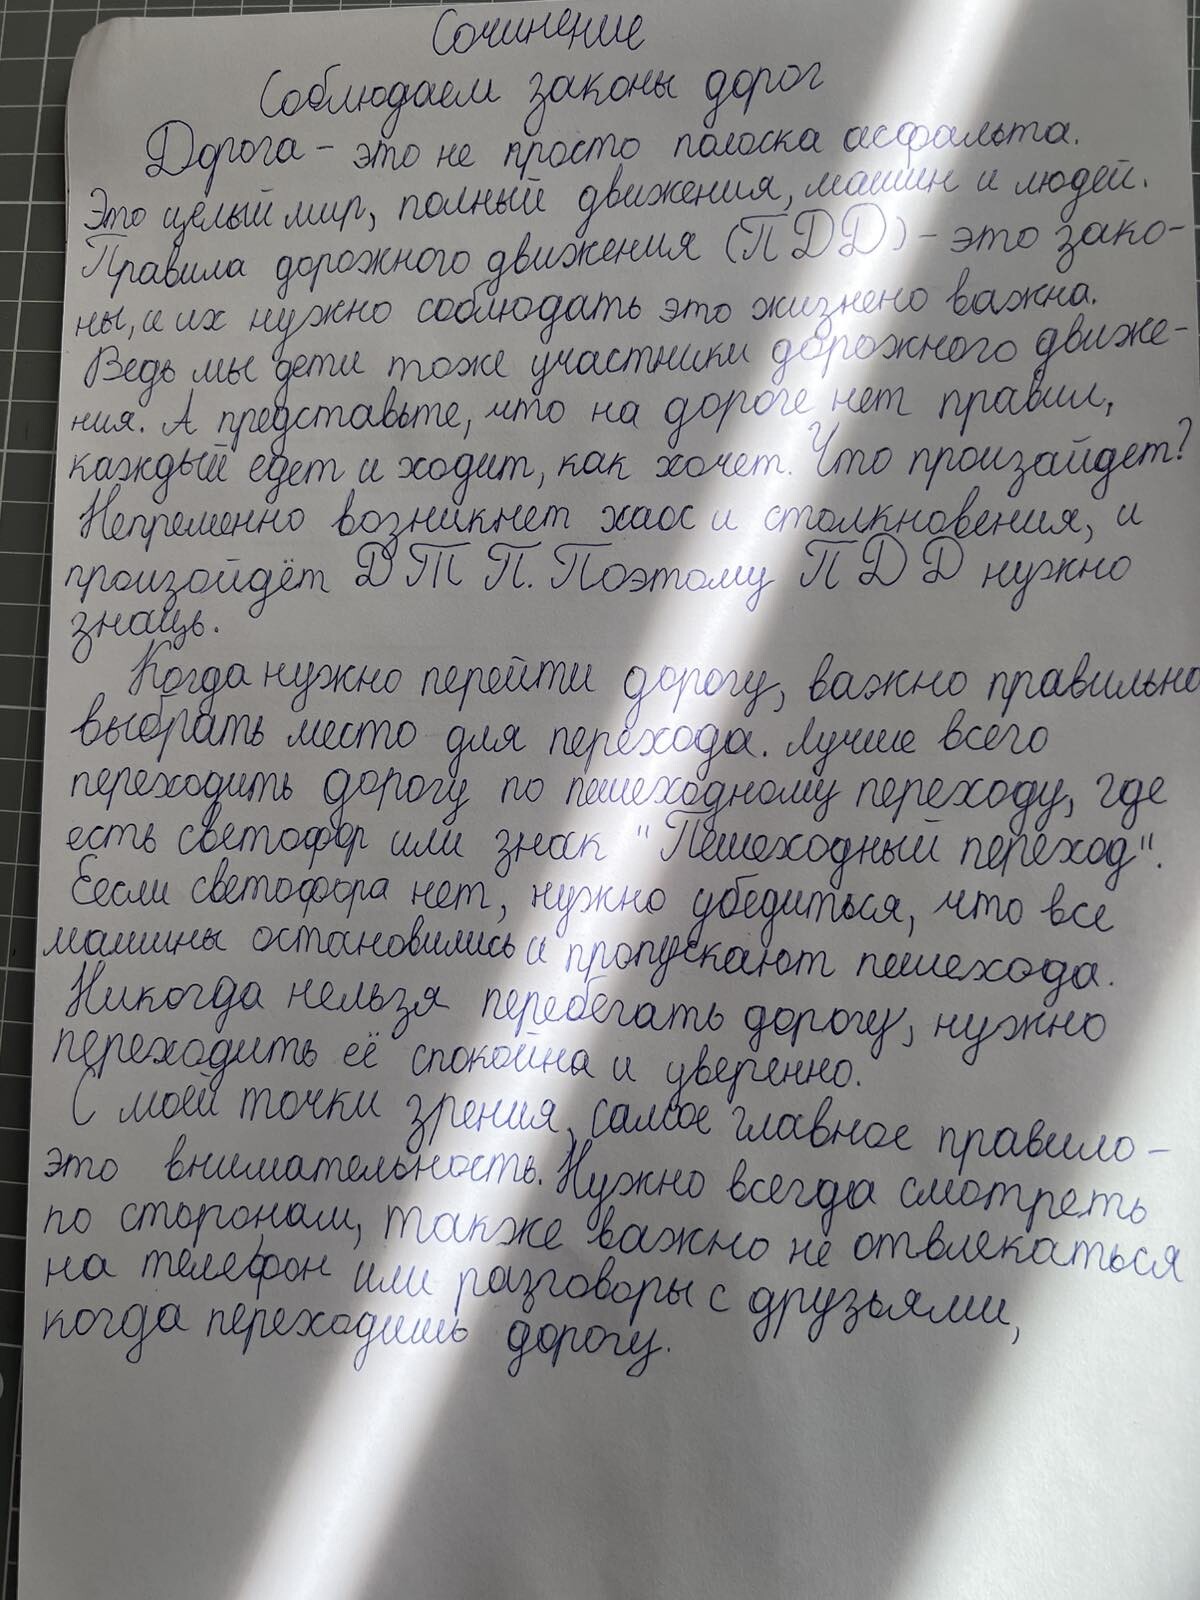 Сочинение
Соблюдаем законы дорог
Дорога - это не просто полоска асфальта.
Это целый мир, полный движения, машин и людей.
Правила дорожного движения (ПДД) - это зако-
ны, и их нужно соблюдать это жизнено важна.
Ведь мы дети тоже участники дорожного движе-
ния. А представьте, что на дороге нет правил,
каждый едет и ходит, как хочет. Что произайдет?
Непременно возникнет хаос и столкновения, и
произойдёт ДТП. Поэтому ПДД нужно
знаць.
Когда нужно перейти дорогу, важно правильно
выбрать место для перехода. Лучше всего
переходить дорогу по пешеходному переходу, где
есть светофор или знак "Пешеходный переход".
Еесли светофора нет, нужно убедиться, что все
машины остановились и пропускают пешехода.
Никогда нельзя перебегать дорогу, нужно
переходить её спокойна и уверенно.
С моей точки зрения, самое главное правило -
это внимательность. Нужно всегда смотреть
по сторонам, также важно не отвлекаться
на телефон или разговоры с друзьями,
когда переходишь дорогу.